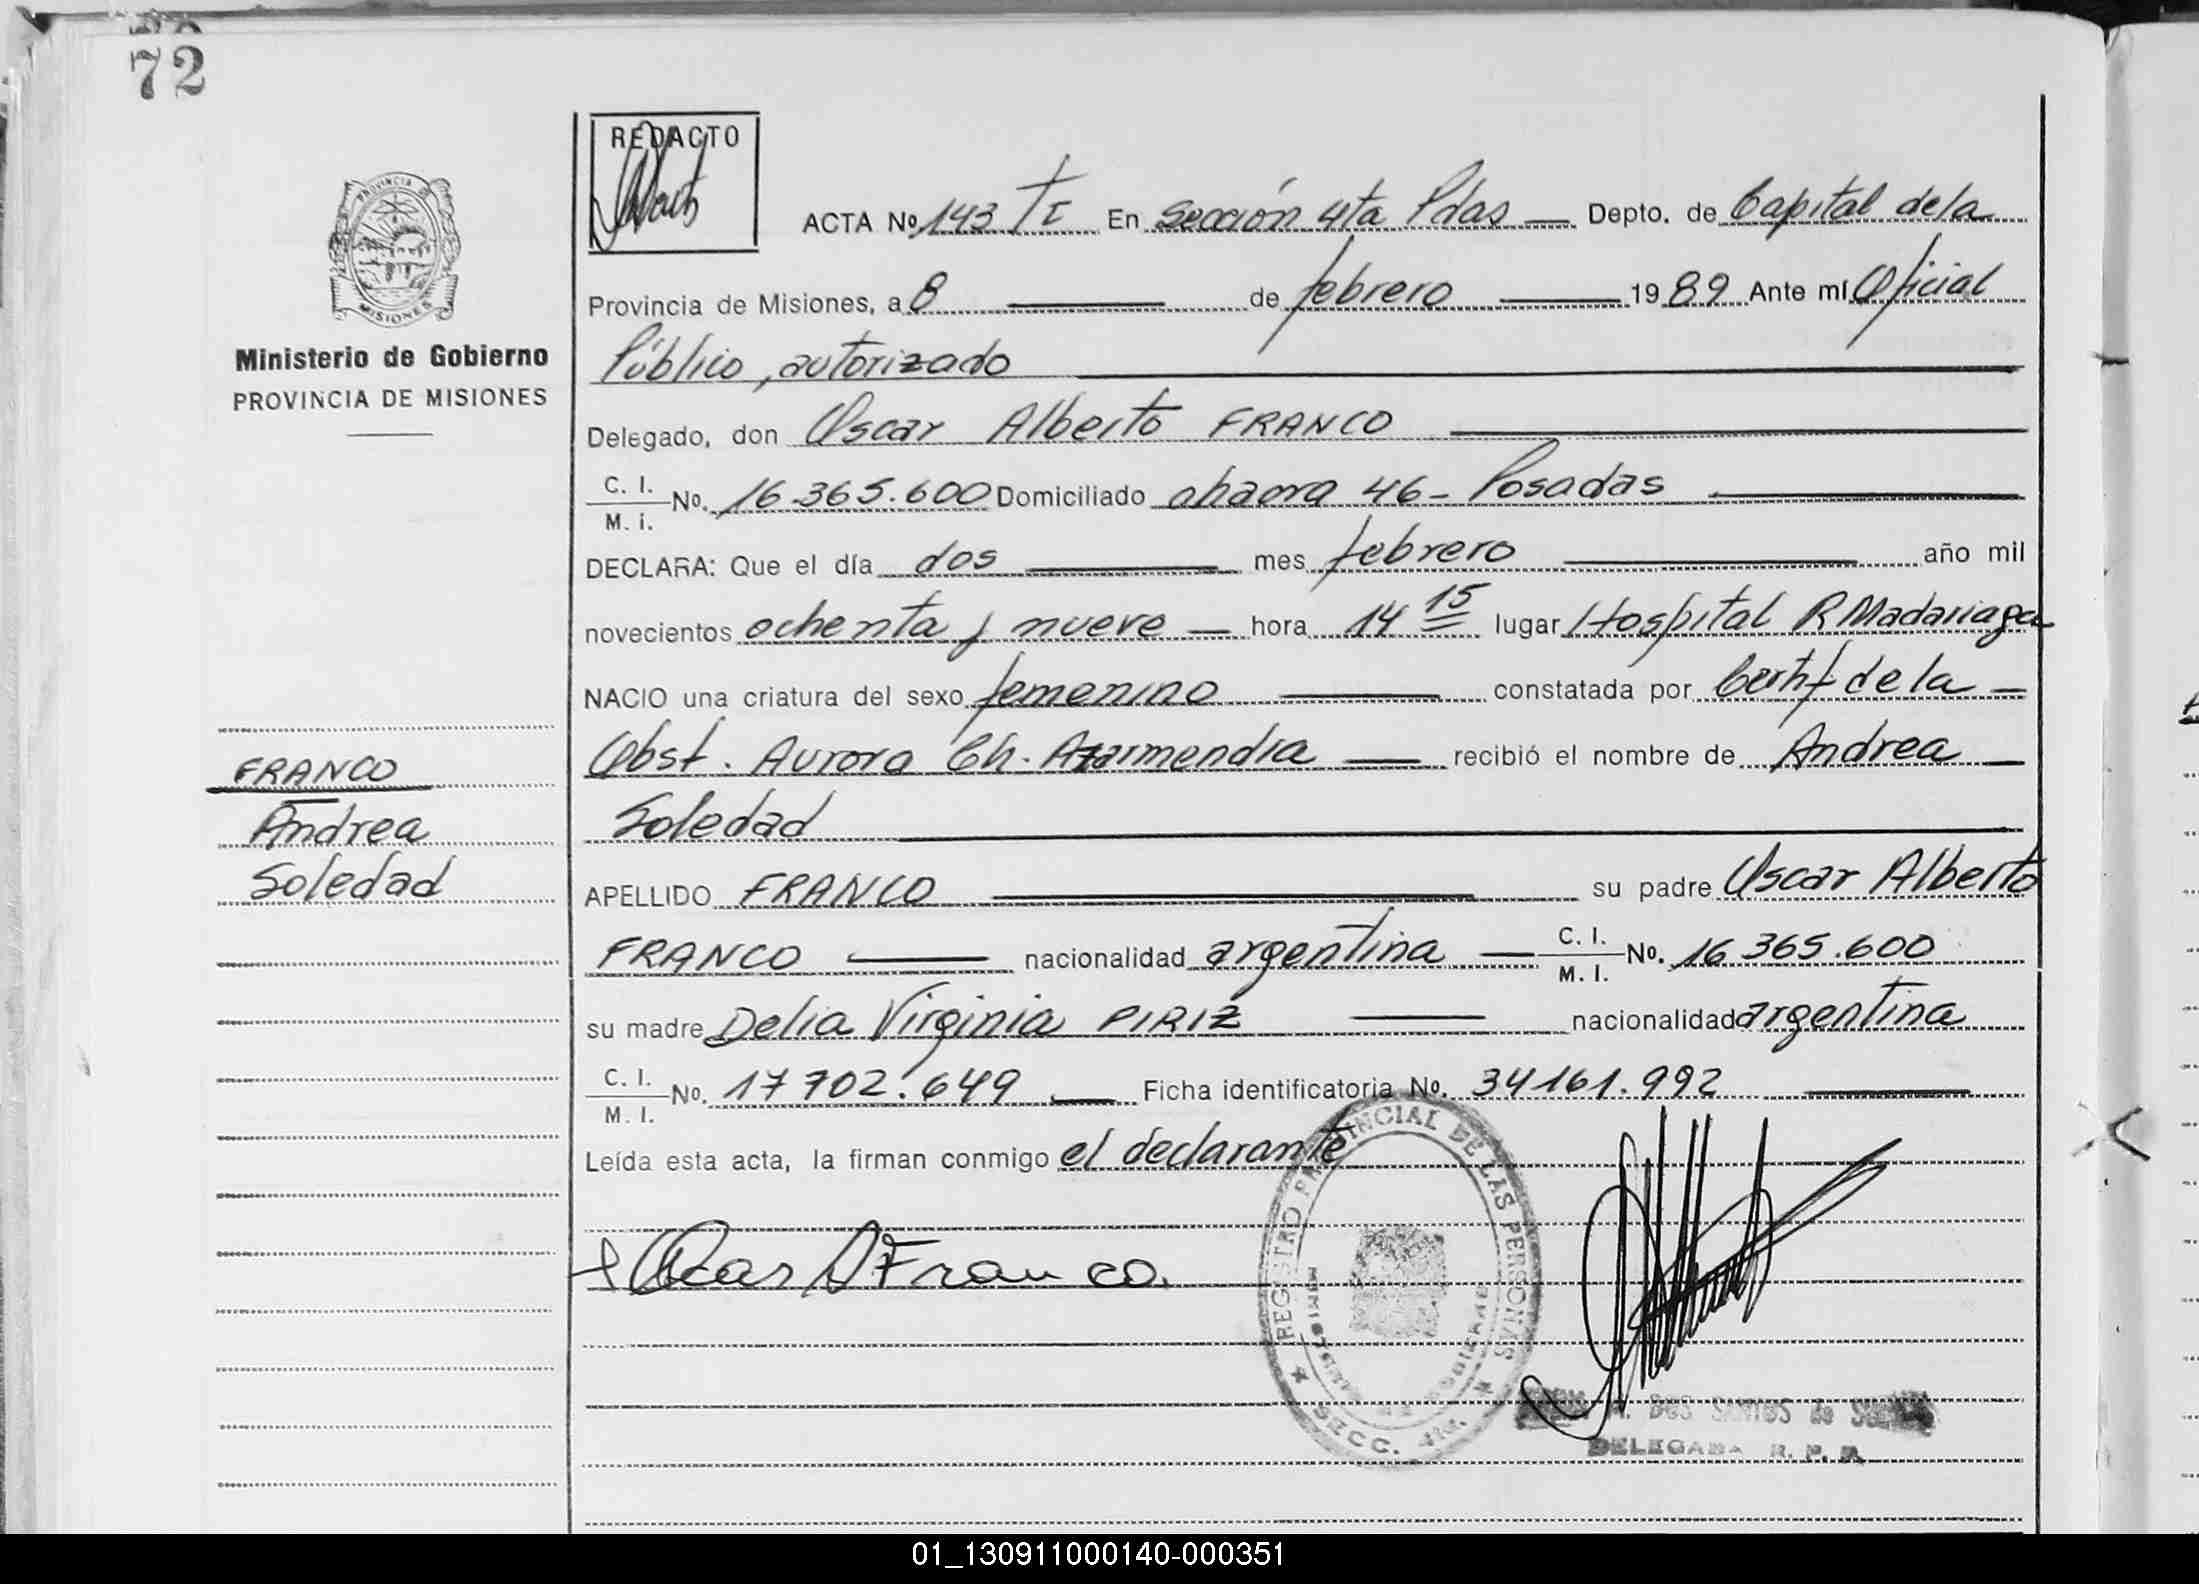 72
REDACTO
ACTA No 143 TI En Sección 4ta Pdas — Depto. de Capital de la
Provincia de Misiones, a 8 — de febrero — 1989 Ante mí Oficial
Público, autorizado —
Delegado, don Oscar Alberto FRANCO —
C. I. / M. i. No. 16.365.600 Domiciliado chacra 46 - Posadas —
DECLARA: Que el día dos — mes febrero — año mil
novecientos ochenta y nueve — hora 14 15 lugar Hospital R Madariaga
NACIO una criatura del sexo femenino — constatada por Certif de la —
Obst. Aurora Ch. Azarmendia — recibió el nombre de Andrea —
Soledad —
APELLIDO FRANCO — su padre Oscar Alberto
FRANCO — nacionalidad argentina — C. I. / M. I. No. 16 365.600
su madre Delia Virginia PIRIZ — nacionalidad argentina
C. I. / M. I. No. 17 702.649 — Ficha identificatoria No. 34161.992 —
Leída esta acta, la firman conmigo el declarante
Oscar A Franco
PROVINCIA DE MISIONES
Ministerio de Gobierno
PROVINCIA DE MISIONES
FRANCO
Andrea
Soledad
REGISTRO PROVINCIAL DE LAS PERSONAS
MINISTERIO DE GOBIERNO
SECC. 4ta.
DOS SANTOS de
DELEGADA R. P.
01_130911000140-000351